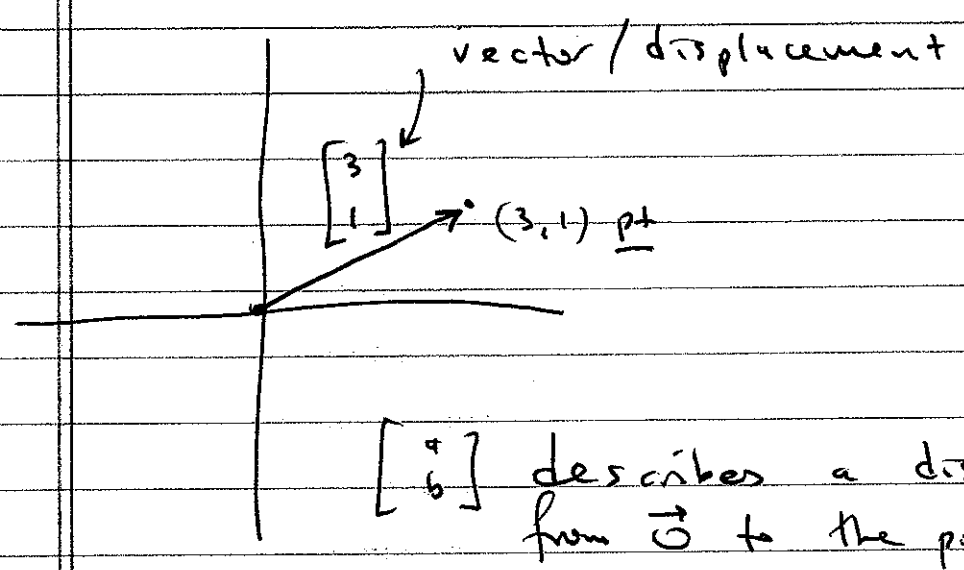 vector / displacement
[3
1]
(3,1) pt
[a
b] describes a
from \vec{0} to the